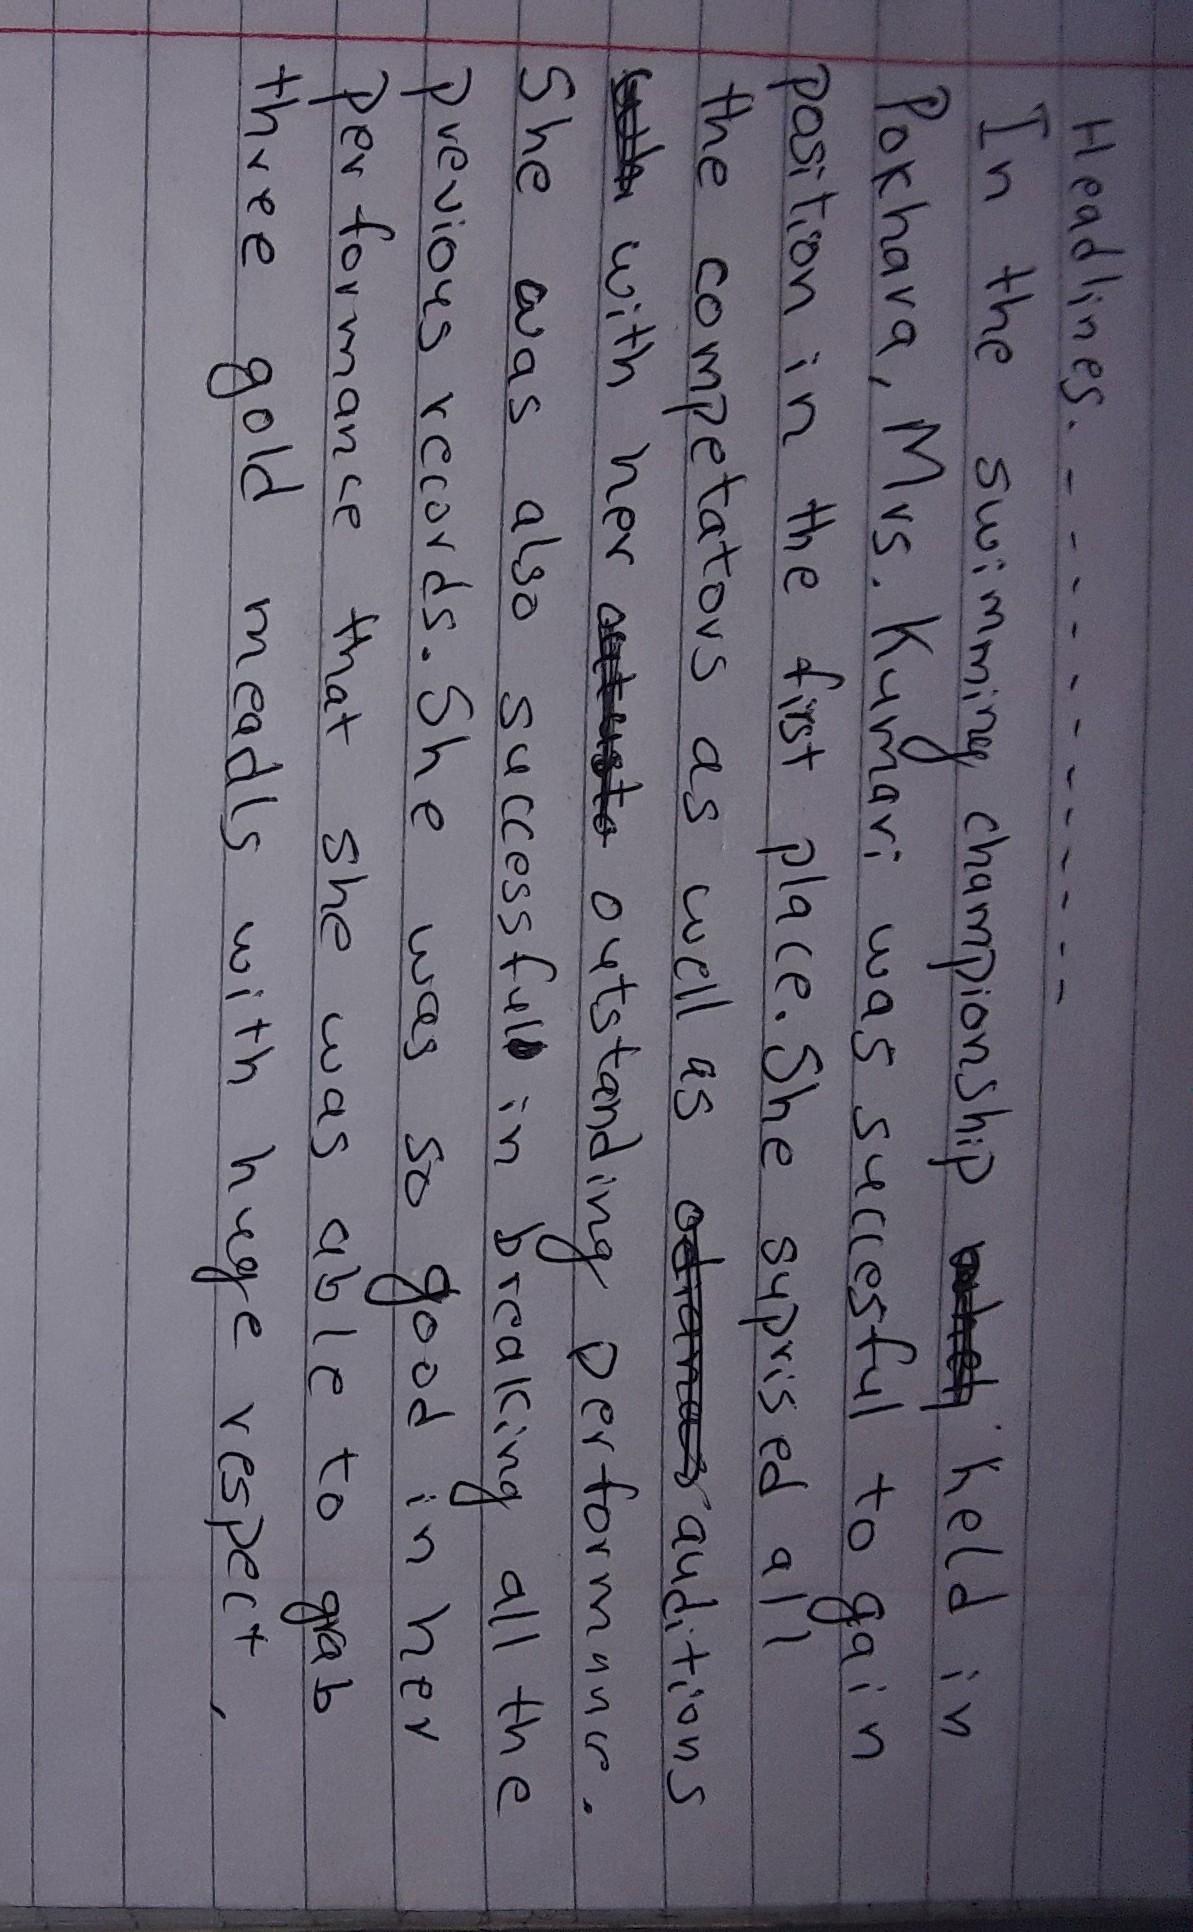 Headlines. - - - - - - - - - - -
In the swimming championship held in
Pokhara, Mrs. Kumari was successful to gain
position in the first place. She suprised all
the competators as well as auditions
with her outstanding performance.
She was also successful in breaking all the
previous records. She was so good in her
performance that she was able to grab
three gold meadls with huge respect.